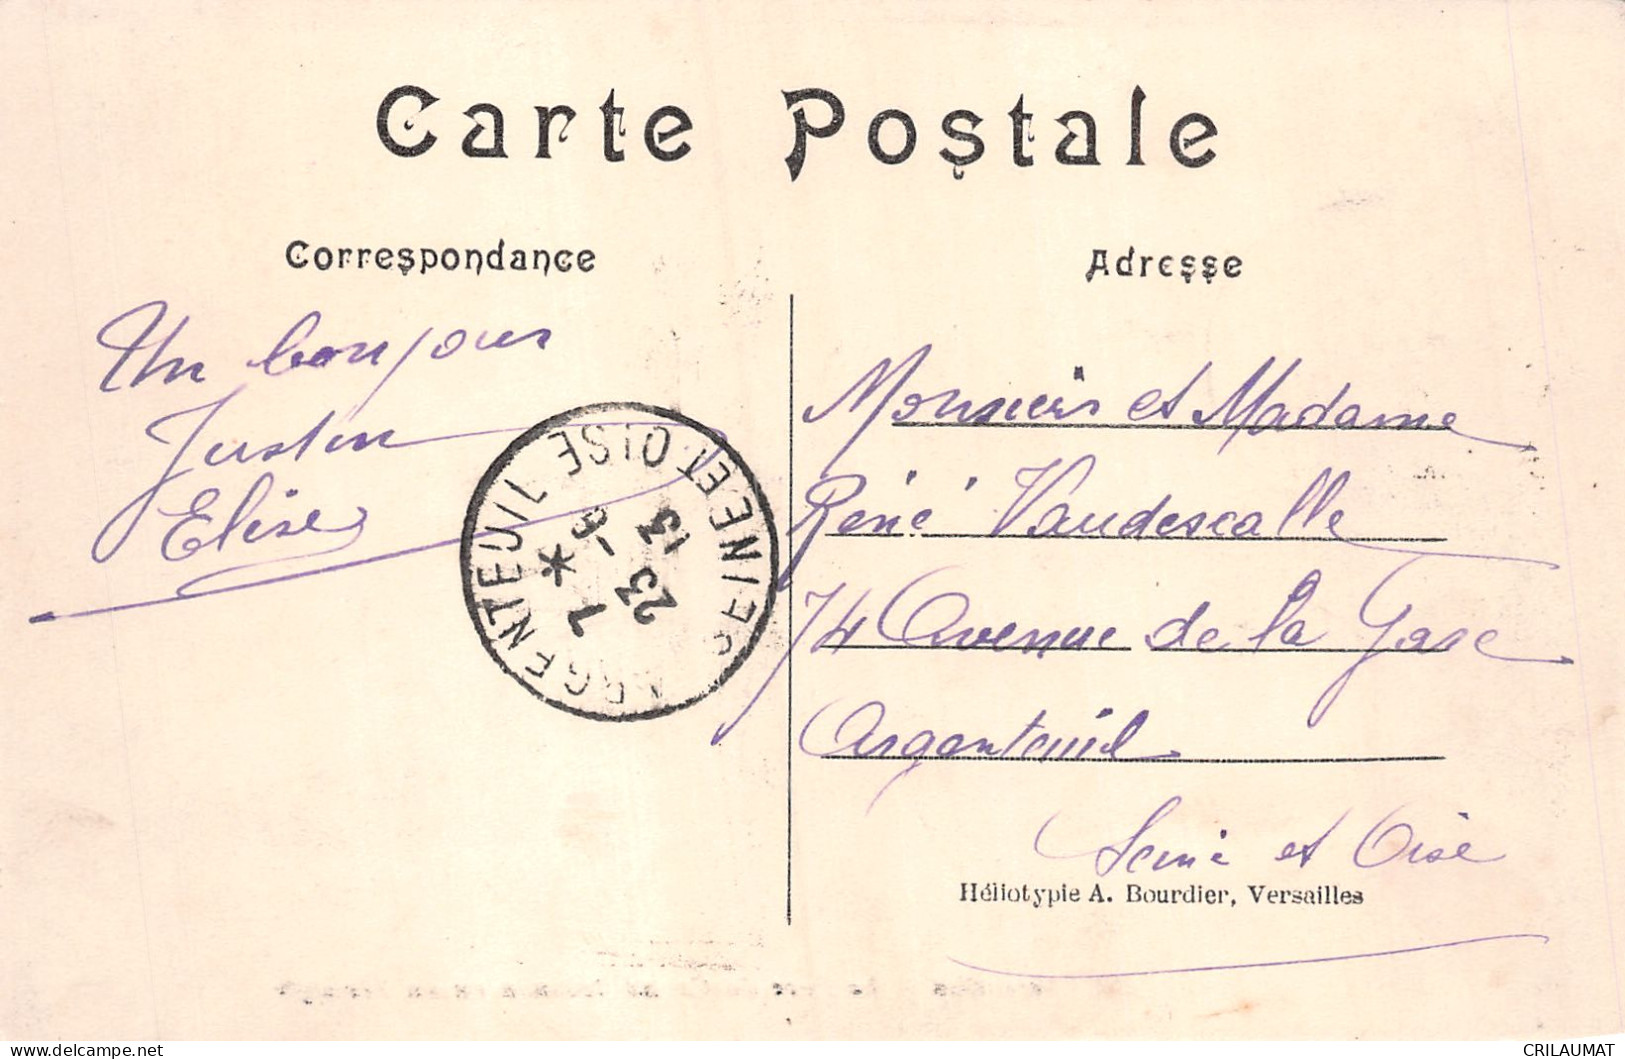 Carte Postale
Correspondance
Adresse
Un bonjour
Justin
Elise
ARGENTEUIL
SEINE ET OISE
7 *
23 -6
13
Monsieur et Madame
René Vaudescalle
74 Avenue de la Gare
Argenteuil
Seine et Oise
Héliotypie A. Bourdier, Versailles
CRILAUMAT